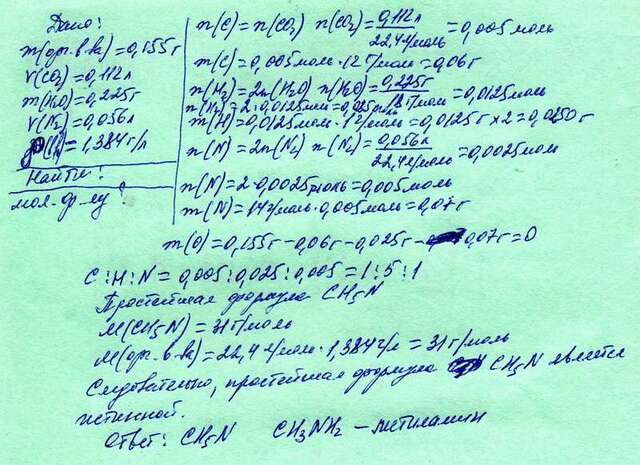 Дано:
m(орг.в-ва)=0,155г
V(CO2)=0,112л
m(H2O)=0,225г
V(N2)=0,056л
=1,384г/л
Найти:
мол. ф-лу
n(C)=n(CO2) n(CO2)=0,112л/22,4л/моль=0,005моль
m(C)=0,005моль·12г/моль=0,06г
n(H2)=2n(H2O) n(H2O)=0,225г/18г/моль=0,0125моль
n(H2)=2·0,0125моль=0,025моль
m(H)=0,0125моль·1г/моль=0,0125г×2=0,0250г
n(N)=2n(N2) n(N2)=0,056л/22,4л/моль=0,0025моль
n(N)=2·0,0025моль=0,005моль
m(N)=14г/моль·0,005моль=0,07г
m(O)=0,155г-0,06г-0,025г-0,07г=0
C:H:N=0,005:0,025:0,005=1:5:1
Простейшая формула CH5N
M(CH5N)=31г/моль
M(орг.в-ва)=22,4л/моль·1,384г/л=31г/моль
Следовательно, простейшая формула CH5N является
истинной.
Ответ: CH5N CH3NH2-метиламин